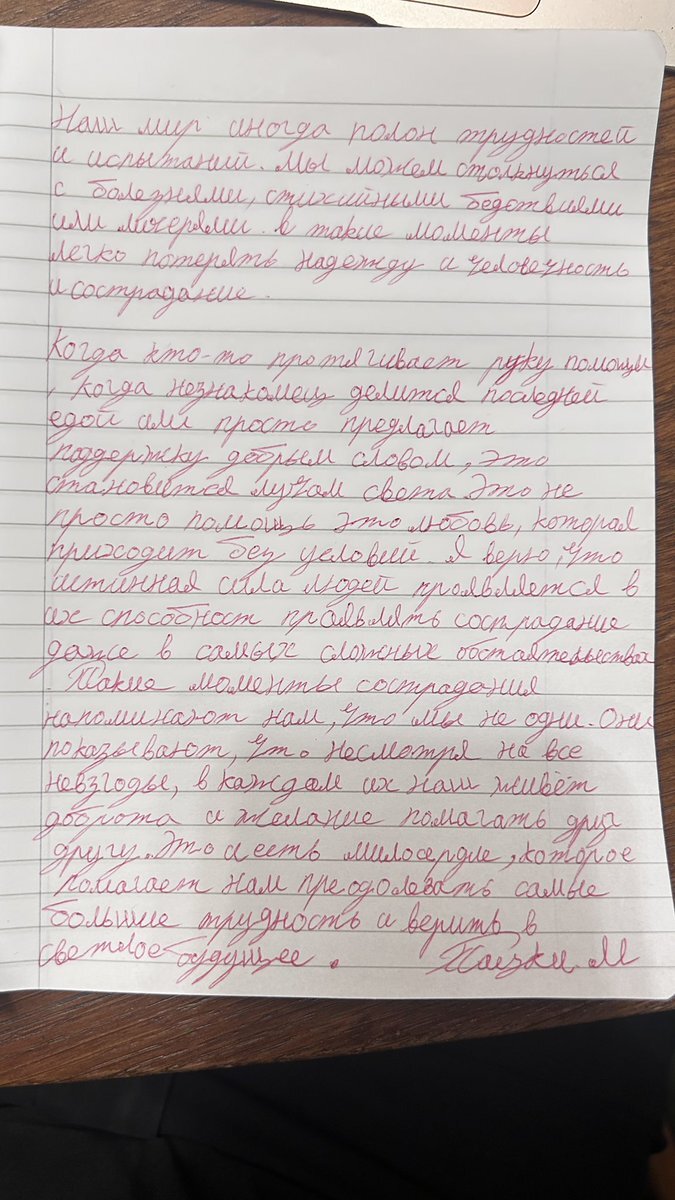 Наш мир иногда полон трудностей
и испытаний. Мы можем столкнуться
с болезнями, стихийными бедствиями
или потерями. в такие моменты
легко потерять надежду и человечность
и сострадание.
Когда кто-то протягивает руку помощи
, когда незнакомец делится последней
едой или просто предлагает
поддержку добрым словом, это
становится лучом света. Это не
просто помощь это любовь, которая
приходит без условий. Я верю, что
истинная сила людей проявляется в
их способност проявлять сострадание
даже в самых сложных обстоятельствах
. Такие моменты сострадания
напоминают нам, что мы не одни. Они
показывают, что несмотря на все
невзгоды, в каждом их наш живёт
доброта и желание помагать друг
другу. Это и есть милосердие, которое
помагает нам преодолевать самые
большие трудность и верить в
светлое будущее. М